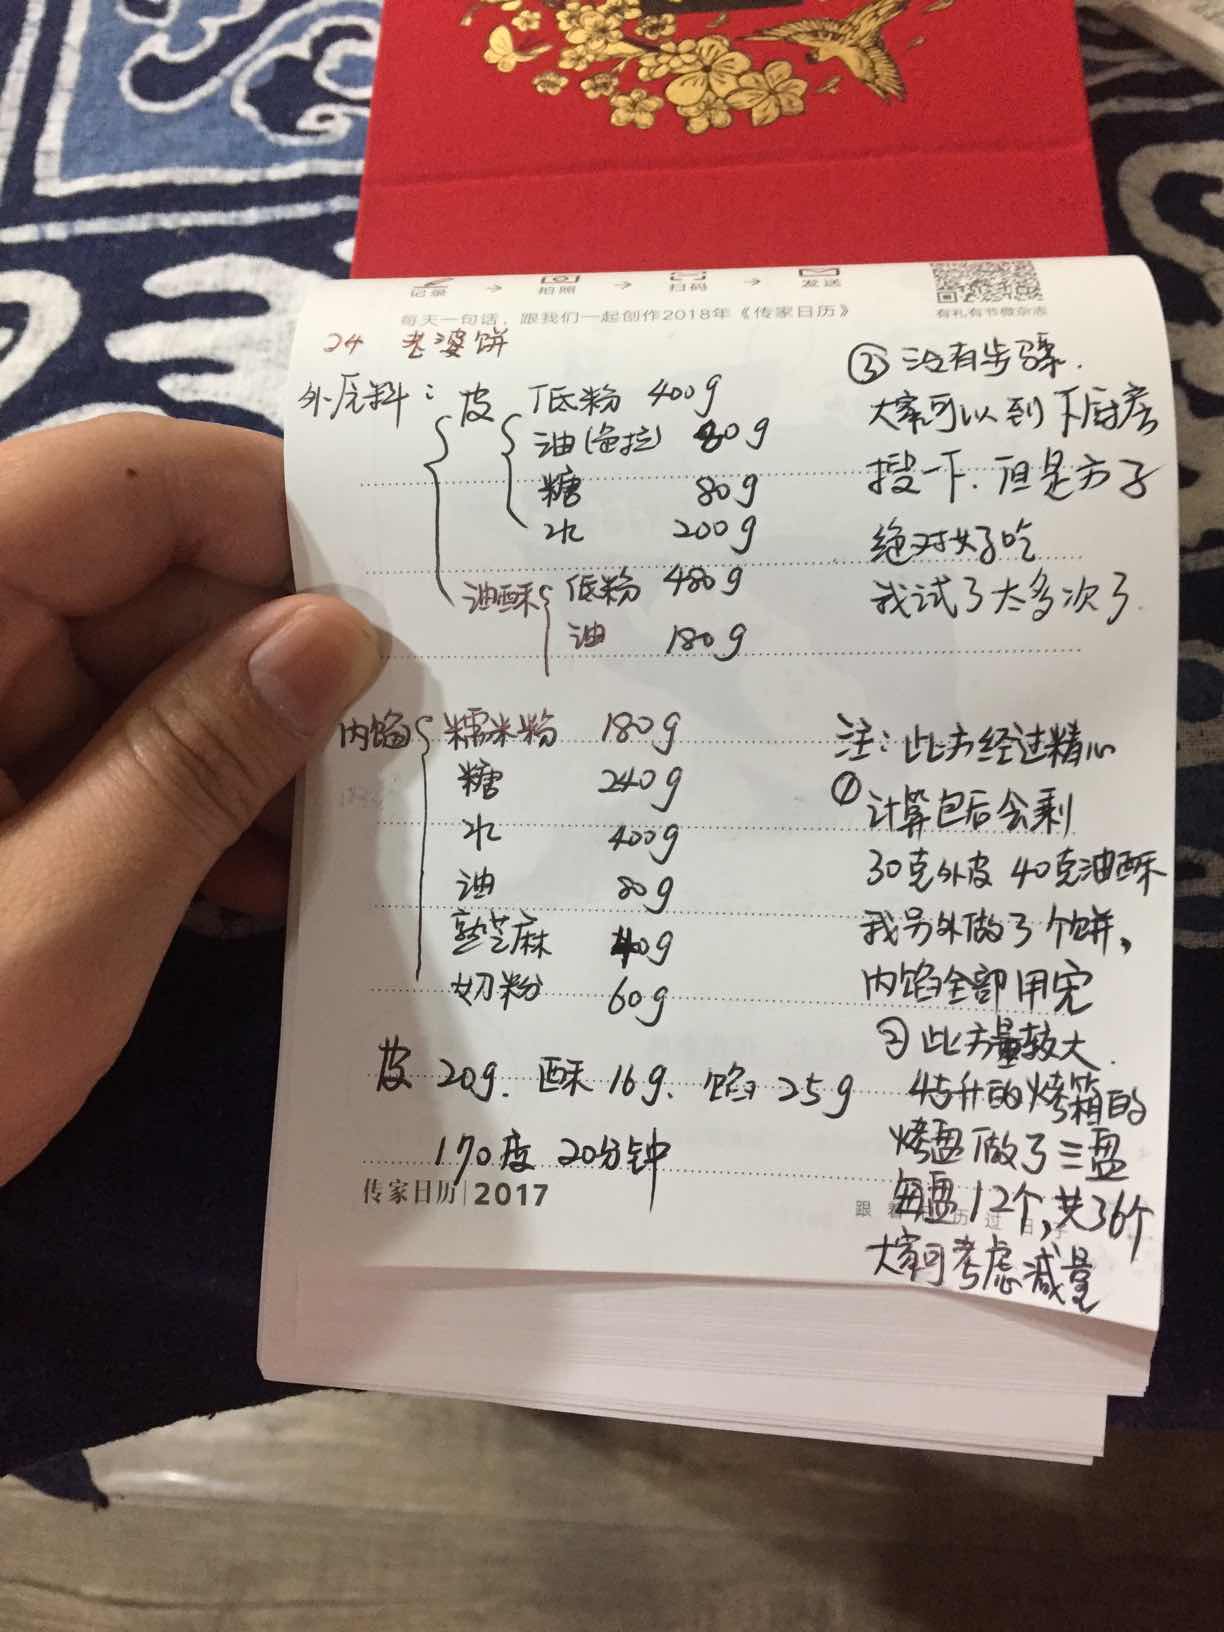 记录 → 拍照 → 扫码 → 发送
有礼有节微杂志
每天一句话，跟我们一起创作2018年《传家日历》
24 老婆饼
外层料： 皮 低粉 400g
油(色拉) 80g
糖 80g
水 200g
油酥 低粉 480g
油 180g
内馅 糯米粉 180g
糖 240g
水 400g
油 80g
熟芝麻 40g
奶粉 60g
皮 20g. 酥 16g. 馅 25g
170度 20分钟
传家日历|2017
③ 没有步骤.
大家可以到下厨房
搜一下. 但是方子
绝对好吃
我试了太多次了.
注: 此方经过精心
① 计算包后会剩
30克外皮 40克油酥
我另外做了个饼,
内馅全部用完
② 此方量较大.
45升的烤箱的
烤盘做了三盘
每盘12个,共36个
大家可考虑减量